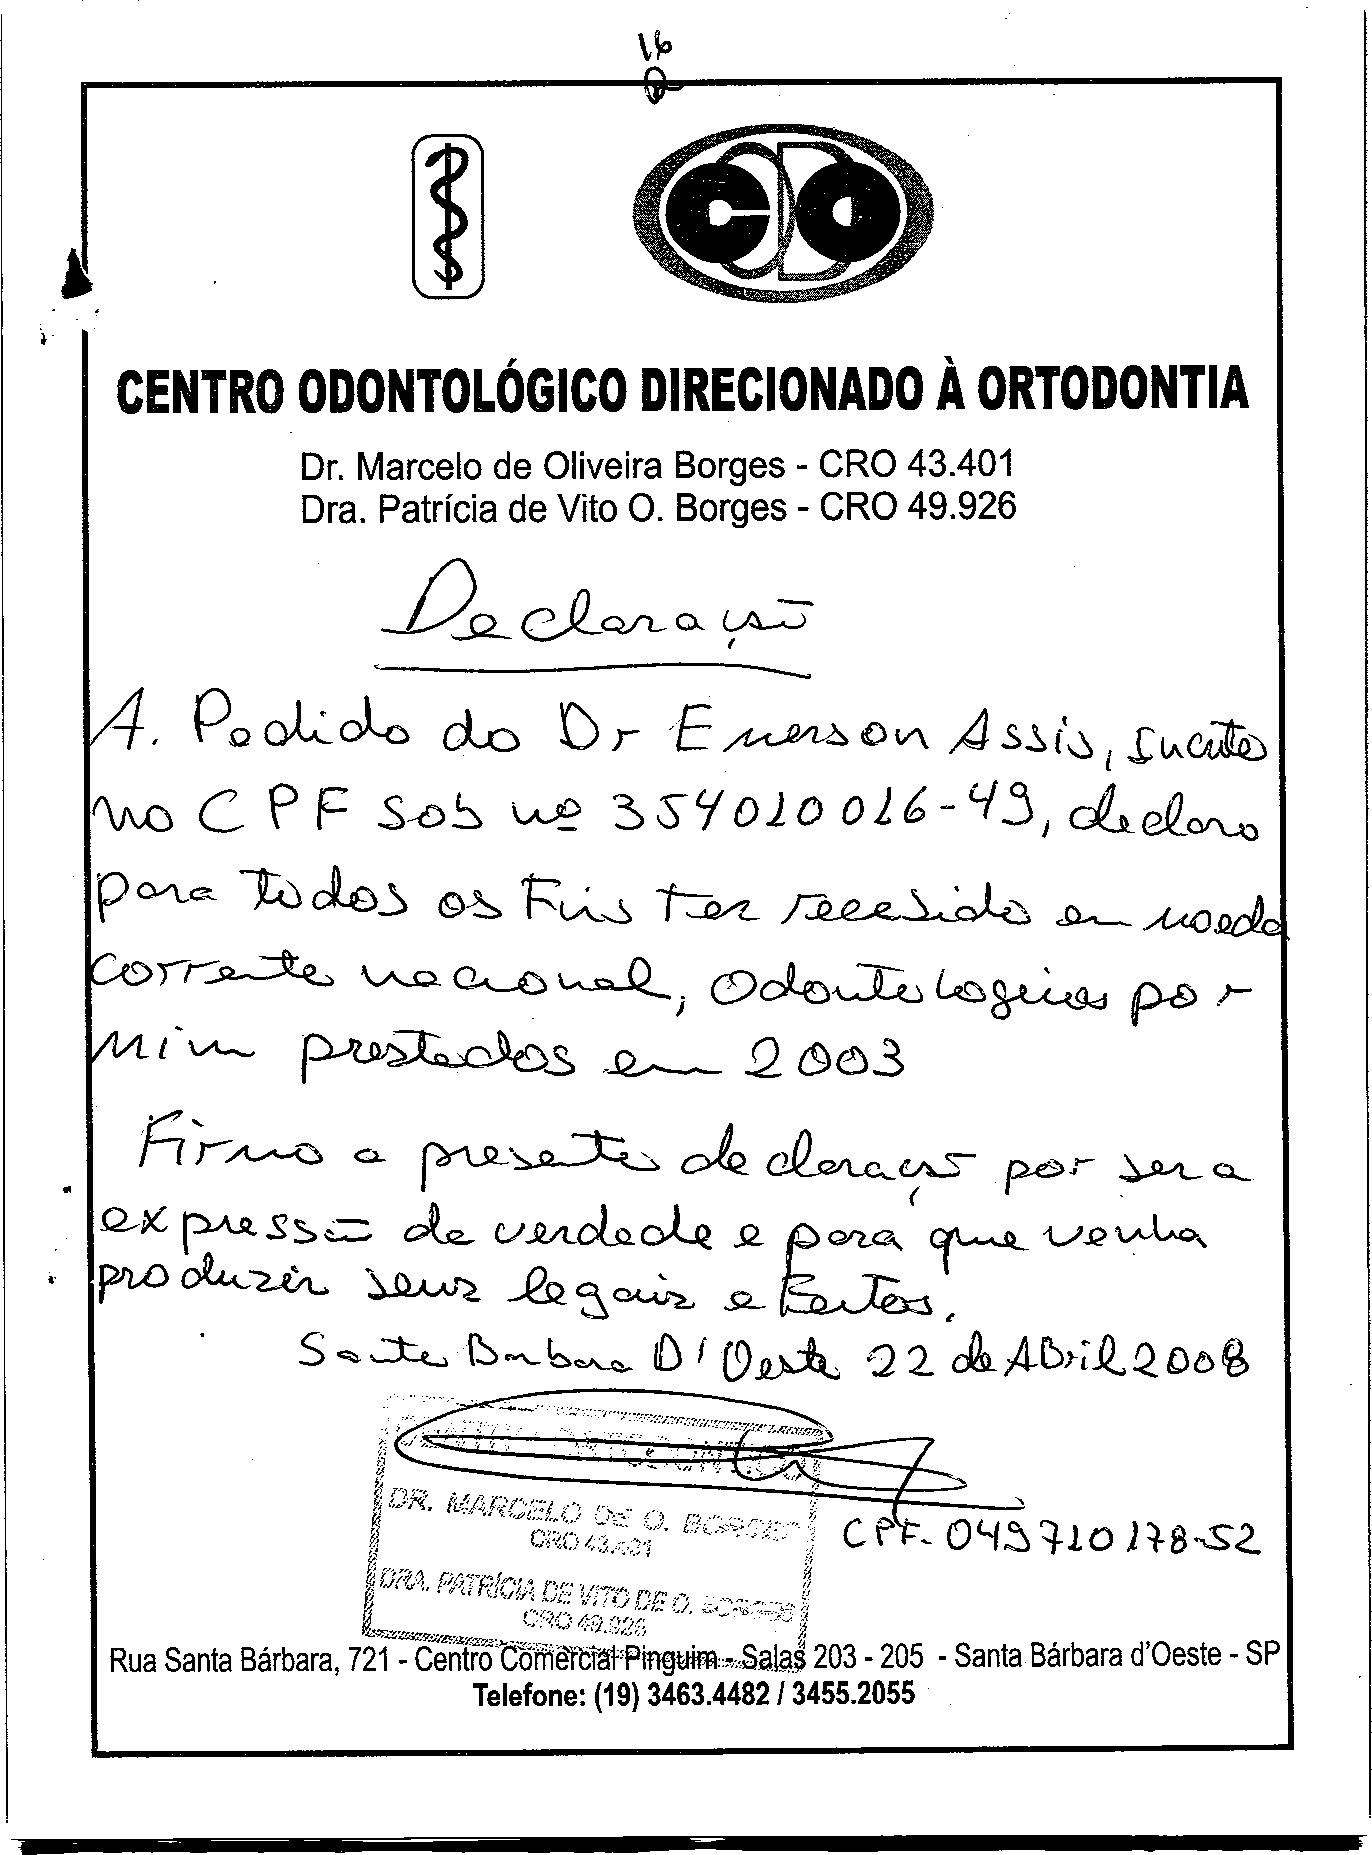 16
CDO
CENTRO ODONTOLÓGICO DIRECIONADO À ORTODONTIA
Dr. Marcelo de Oliveira Borges - CRO 43.401
Dra. Patrícia de Vito O. Borges - CRO 49.926
Declaração
A. Pedido do Dr Emerson Assis,
no CPF sob nº 354010016-49, declaro
para todos os Fins ter recebido em moeda
corrente nacional, Odontologicos por
mim prestados em 2003
Firmo a presente declaração por ser a
expressão da verdade e para que venha
produzir seus legais efeitos.
Santa Barbara D'Oeste 22 de ABril 2008
DR. MARCELO DE O. BORGES
CRO 43.401
CPF. 049710178-52
DRA. PATRÍCIA DE VITO DE O. BORGES
CRO 49.926
Rua Santa Bárbara, 721 - Centro Comercial Pinguim - Salas 203 - 205 - Santa Bárbara d'Oeste - SP
Telefone: (19) 3463.4482 / 3455.2055